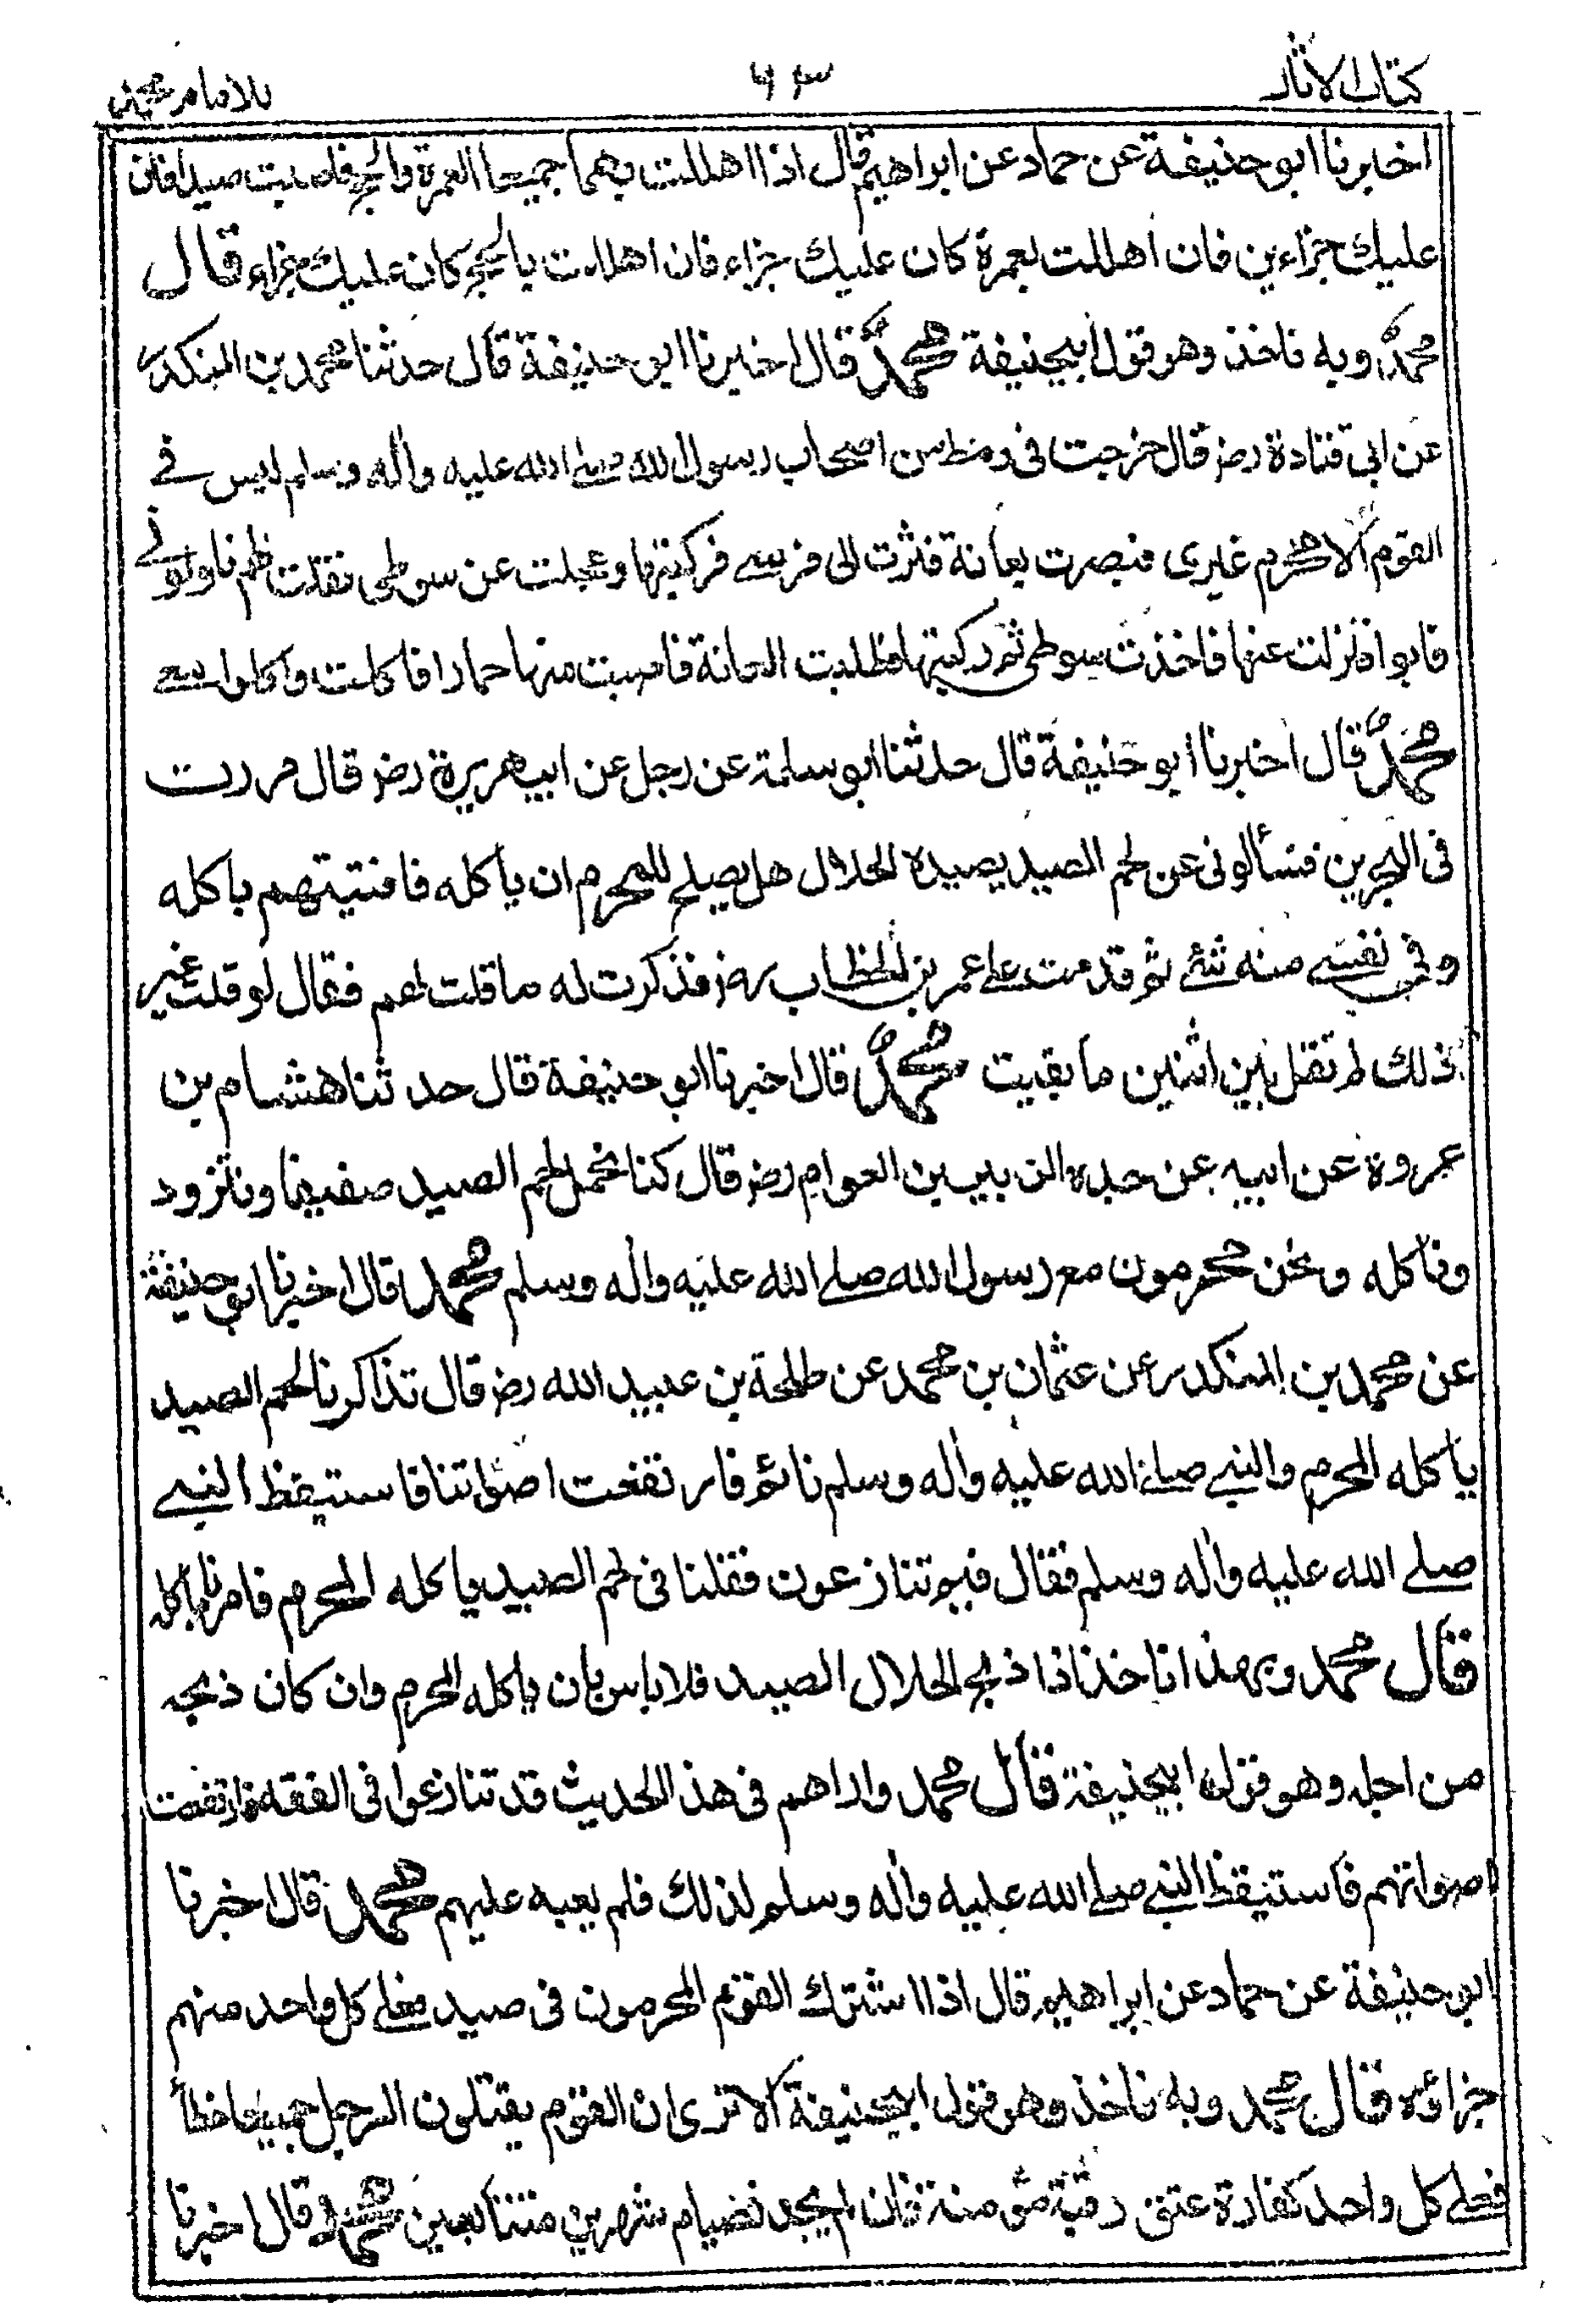 كتاب الاثار ٦٣ للامام محمد
اخبرنا ابو حنيفة عن حماد عن ابراهيم قال اذا اهللت بهما جميعا العمرة والحج فاصبت صيدا فان
عليك جزاءين فان اهللت بعمرة كان عليك جزاء فان اهللت بالحج كان عليك جزاء قال
محمد وبه ناخذ وهو قول ابيحنيفة محمد قال اخبرنا ابو حنيفة قال حدثنا محمد بن المنكدر
عن ابى قتادة رضـ قال خرجت فى رهط من اصحاب رسول الله صلے الله عليه واٰله وسلم ليس فے
القوم الا محرم غيرى فبصرت بعانة فثرت الى فرسے فركبتها وعجلت عن سوطى فقلت لهم ناولونے
فابوا فنزلت عنها فاخذت سوطى ثم ركبتها فطلبت العانة فاصبت منها حمارا فاكلت واكلوا معے
محمد قال اخبرنا ابو حنيفة قال حدثنا ابو سلمة عن رجل عن ابيهريرة رضـ قال مررت
فى البحرين فسألونى عن لحم الصيد يصيده الحلال هل يصلح للمحرم ان ياكله فافتيتهم باكله
وفى نفسے منه شئے ثم قدمت علے عمر بن الخطاب رضـ فذكرت له ما قلت لهم فقال لو قلت غير
ذلك لم تقل بين اثنين ما بقيت محمد قال اخبرنا ابو حنيفة قال حدثنا هشام بن
عروة عن ابيه عن جده الزبير بن العوام رضـ قال كنا نحمل لحم الصيد صفيفا ونتزود
وناكله ونحن محرمون مع رسول الله صلے الله عليه واٰله وسلم محمد قال اخبرنا ابو حنيفة
عن محمد بن المنكدر عن عثمان بن محمد عن طلحة بن عبيد الله رضـ قال تذاكرنا لحم الصيد
ياكله المحرم والنبے صلے الله عليه واٰله وسلم نائم فارتفعت اصواتنا فاستيقظ النبے
صلے الله عليه واٰله وسلم فقال فيم تنازعون فقلنا فى لحم الصيد ياكله المحرم فامرنا باكله
قال محمد وبهذا ناخذ اذا ذبح الحلال الصيد فلا باس بان ياكله المحرم وان كان ذبحه
من اجله وهو قول ابيحنيفة قال محمد واراهم فى هذا الحديث قد تنازعوا فى الفقه فارتفعت
اصواتهم فاستيقظ النبے صلے الله عليه واٰله وسلم لذلك فلم يعبه عليهم محمد قال اخبرنا
ابو حنيفة عن حماد عن ابراهيم قال اذا اشترك القوم المحرمون فى صيد فعلے كل واحد منهم
جزاؤه قال محمد وبه ناخذ وهو قول ابيحنيفة الا ترى ان القوم يقتلون الرجل جميعا خطأ
فعلے كل واحد كفارة عتق رقبة مؤمنة فان لم يجد فصيام شهرين متتابعين محمد قال اخبرنا